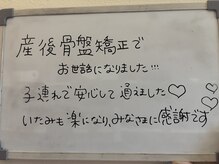 産後骨盤矯正で
お世話になりました…
子連れで安心して通えました♡♡
いたみも楽になり、みなさまに感謝です